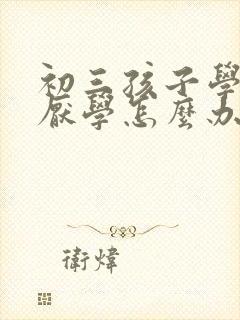 初三孩子學
厭學怎麼办
衛煒